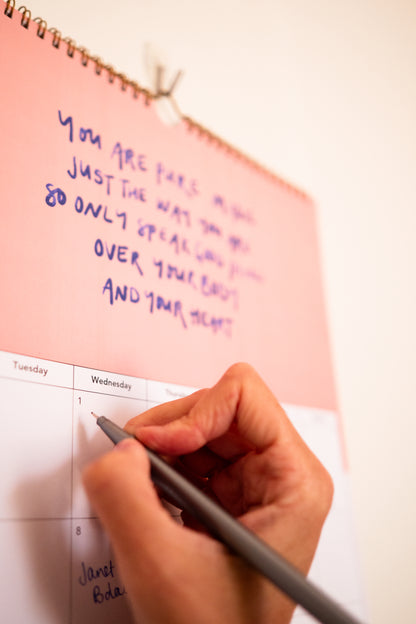 YOU ARE PURE MAGIC
JUST THE WAY YOU ARE
SO ONLY SPEAK GOOD
OVER YOUR BODY
AND YOUR HEART
Tuesday Wednesday Thursday
1
8
Janet